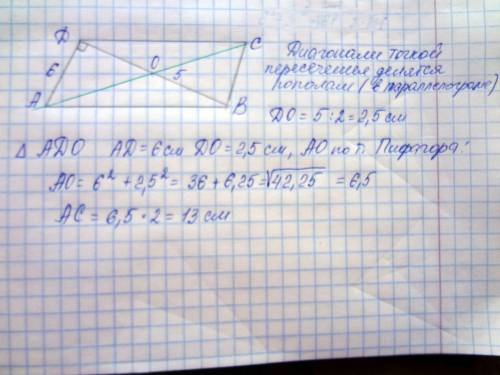 D
O
C
6
5
A
B
Диагонали точкой
пересечения делятся
пополам (в параллелограме)
DO = 5:2 = 2,5 см
Δ ADO AD = 6 см DO = 2,5 см, AO по т. Пифагора:
AO = 6² + 2,5² = 36 + 6,25 = √42,25 = 6,5
AC = 6,5 · 2 = 13 см